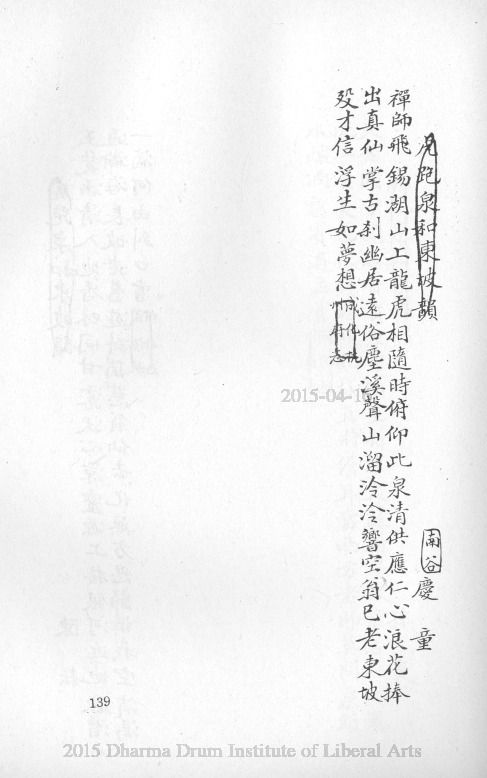 虎跑泉和東坡韻
南谷慶童
禪師飛錫湖山上龍虎相隨時俯仰此泉清供應仁心浪花捧
出真仙掌古刹幽居遠俗塵溪聲山溜泠泠響空翁已老東坡
歿才信浮生如夢想成化杭州府志
139
2015-04-1
2015 Dharma Drum Institute of Liberal Arts